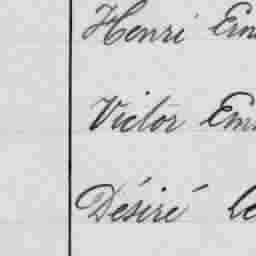 Henri Em
Victor Em
Désiré le